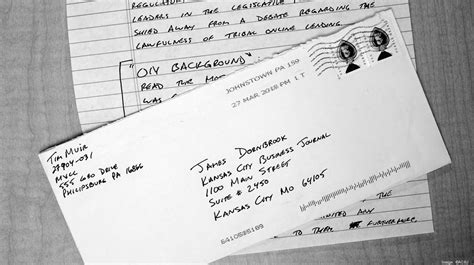 REGULATORY
LEADERS IN THE LEGISLATIVE
SHIED AWAY FROM A DEBATE REGARDING THE
LAWFULNESS OF TRIBAL ONLINE LENDING.
"OIY BACKGROUND"
READ THE MO
WAS
JOHNSTOWN PA 159
27 MAR 2018 PM 1 T
TIM MUIR
MVCC
555 GEO DRIVE
PHILIPSBURG PA 16866
JAMES DORNBROOK
KANSAS CITY BUSINESS JOURNAL
1100 MAIN STREET
SUITE # 2450
KANSAS CITY MO 64105
ANY
TO THEM
FURTHERMORE,